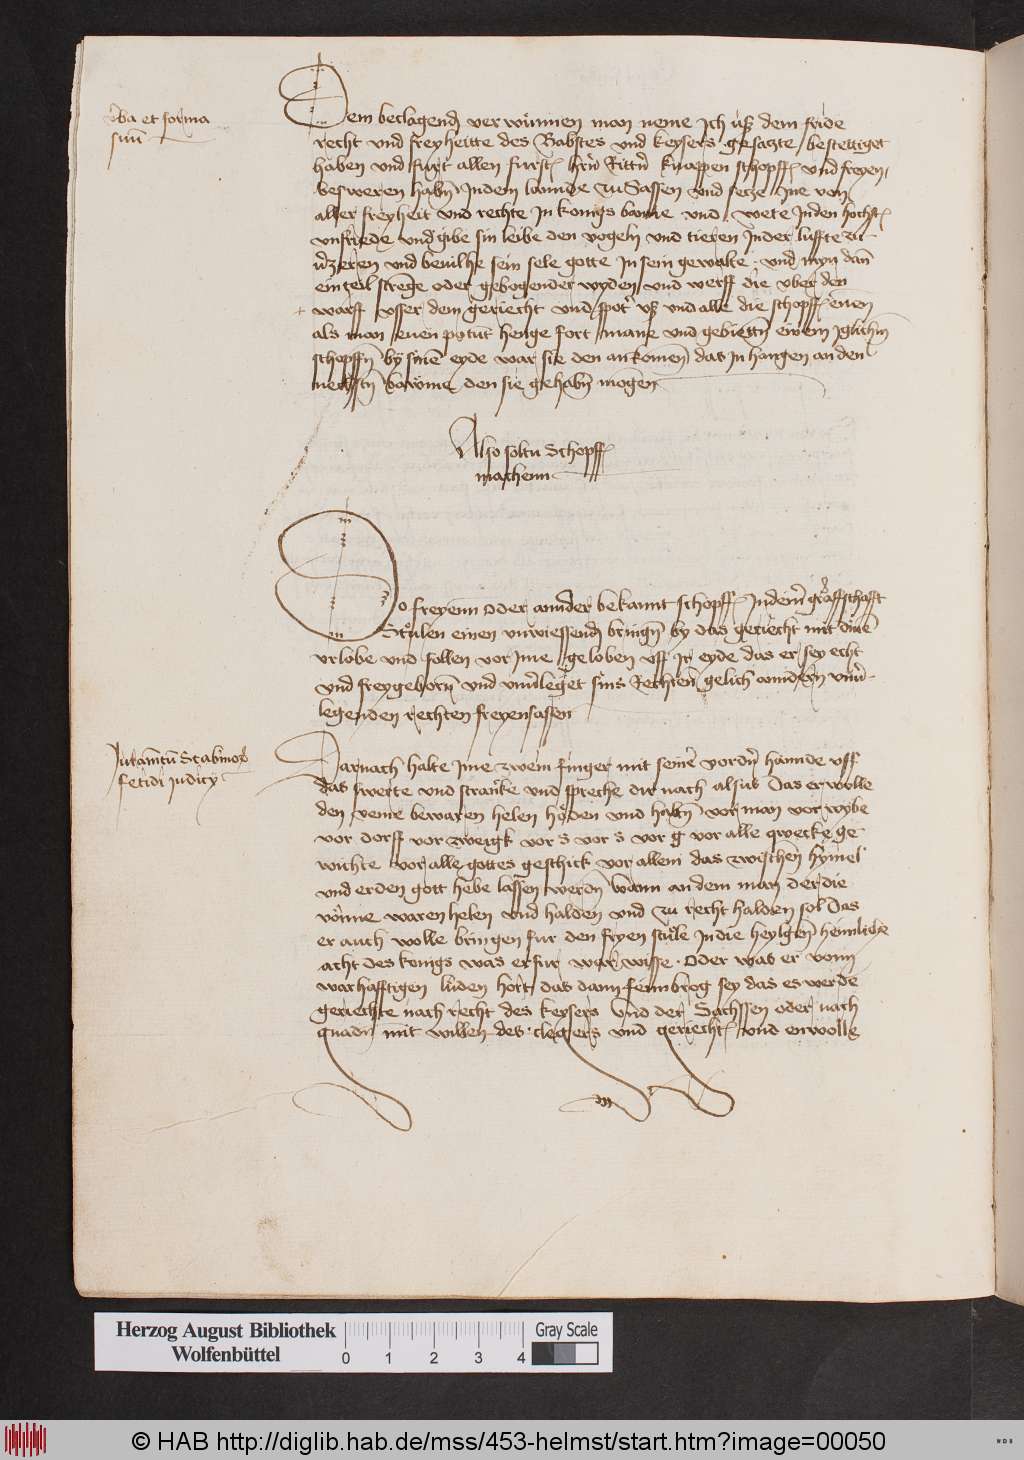 v̄ba et forma
sun̄
Dem beclagend verwunnen man neme Ich uß dem fride
recht und freyheitte des Babstes und keysers gesatzte bestettiget
haben und furt allen furst hrn̄ Rittn̄ knappen schopff und freyen
besweren habn̄ Indem lannde zu Sassen und setze Ine von
aller freyheit und rechte In konigs banne und wete Inden hochst
vnfriede und gibe sin leibe den vogeln und tieren Inder luffte zu
v̄zeren und beuilhe sein sele gotte In sein gewalte und
ein teil strege oder gebogender wyden und werff die vber den
warff vsser dem geriecht und uß und alle die schopff
als man henge fort mane und
schopffn̄ by sine eyde war sie den ankomen das In hangen an den
nechstn̄ bawme den sie gehabn̄ mogen
Also soltu Schopff
machenn
So freyenn oder annder bekannt schopff Indem̄ graffschafft
Stulen einen vnwiessend bringn̄ by das geriecht mit dine
vrlobe und sollen vor Ime geloben vff Ir eyde das er sey echt
und freygeborn̄ und sins Rechten gelich anndern̄
legenden rechten freyensassen
Juramentū Scabinor
fetidi Judicy
Darnach halte Ime zwein finger mit seine vordn̄ hannde vff
das swerte und strancke und spreche dir nach alsus Das er wolle
den veme bewaren helen huden und habn̄ vor man vor wybe
vor dorff vor zweigk vor s vor s vor g vor alle qwecke ge
wichte vor alle gottes geschick vor allem das zwischen hymel
und erden gott hebe lassen werdn̄ wann an dem man der die
vorme waren helen und halden und zu recht halden sol Das
er auch wolle bringen fur den fryen stule In die heylgen̄ heimliche
acht des konigs was er fur war wisse oder was er vonn
warhafftigen luden hort das dann fermbrog sey das es werde
geriechte nach recht des keysers und der Sachssen oder nach
gnadn̄ mit willen des clegers und geriecht und enwolle
Herzog August Bibliothek
Wolfenbüttel
0 1 2 3 4
Gray Scale
© HAB http://diglib.hab.de/mss/453-helmst/start.htm?image=00050